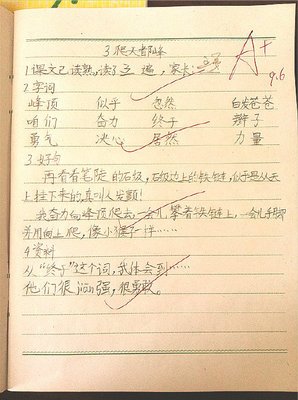 3 爬天都峰
A+
1 课文已读熟,读了五遍,家长:
9.6
2 字词
峰顶 似乎 忽然 白发苍苍
咱们 奋力 终于 辫子
勇气 决心 居然 力量
3 好句
再看看笔陡的石级,石级边上的铁链,似乎是从天
上挂下来的,真叫人发颤!
我奋力向峰顶爬去,一会儿攀着铁链上,一会儿手脚
并用向上爬,像小猴子一样……
4 资料
从“终于”这个词,我体会到……
他们很顽强,很勇敢。